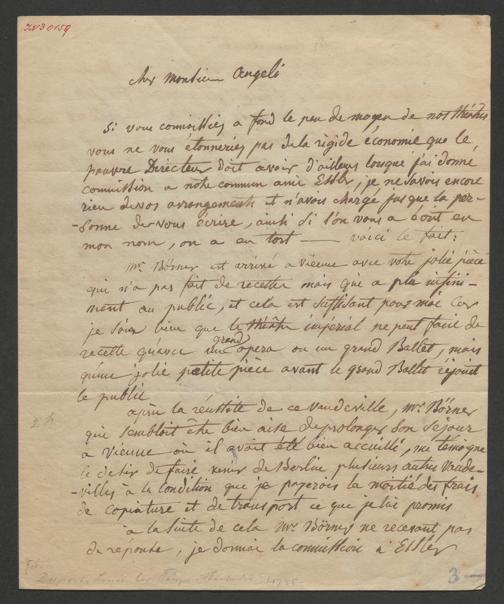 cher monsieur Angeli
Si vous connaissiez a fond le peu de moyen de nos théatres
vous ne vous étonneriez pas de la rigide économie que le
pauvre Directeur doit avoir d'ailleurs lorsque j'ai donné
commission a notre commun ami Essler, je ne savois encore
rien de vos arrangements et n'avois chargé pas que la per-
sonne de vous écrire, ainsi si l'on vous a écrit en
mon nom, on a eu tort — voici le fait:
Mr Börner est arrivé a vienne avec votre jolie pièce
qui n'a pas fait de recettes mais que a plu infini-
ment au public, et cela est suffisant pour moi car
je sais bien que le théatre impérial ne peut faire de
recette qu'avec un grand opera ou un grand Ballet, mais
qu'une jolie petite pièce avant le grand Ballet rejouit
le public
après la réussite de ce vaudeville, Mr Börner
qui sembloit être bien aise de prolonger son séjour
a Vienne où il avoit été bien accuilli, me témoigne
le desir de faire venir de Berlin plusieurs autres vaude-
villes à la condition que je payerois la moitié des frais
de copiature et de transport ce que je lui promis
à la suite de cela Mr Börner ne recevant pas
de reponse, je donnai la commission a Essler
3 —